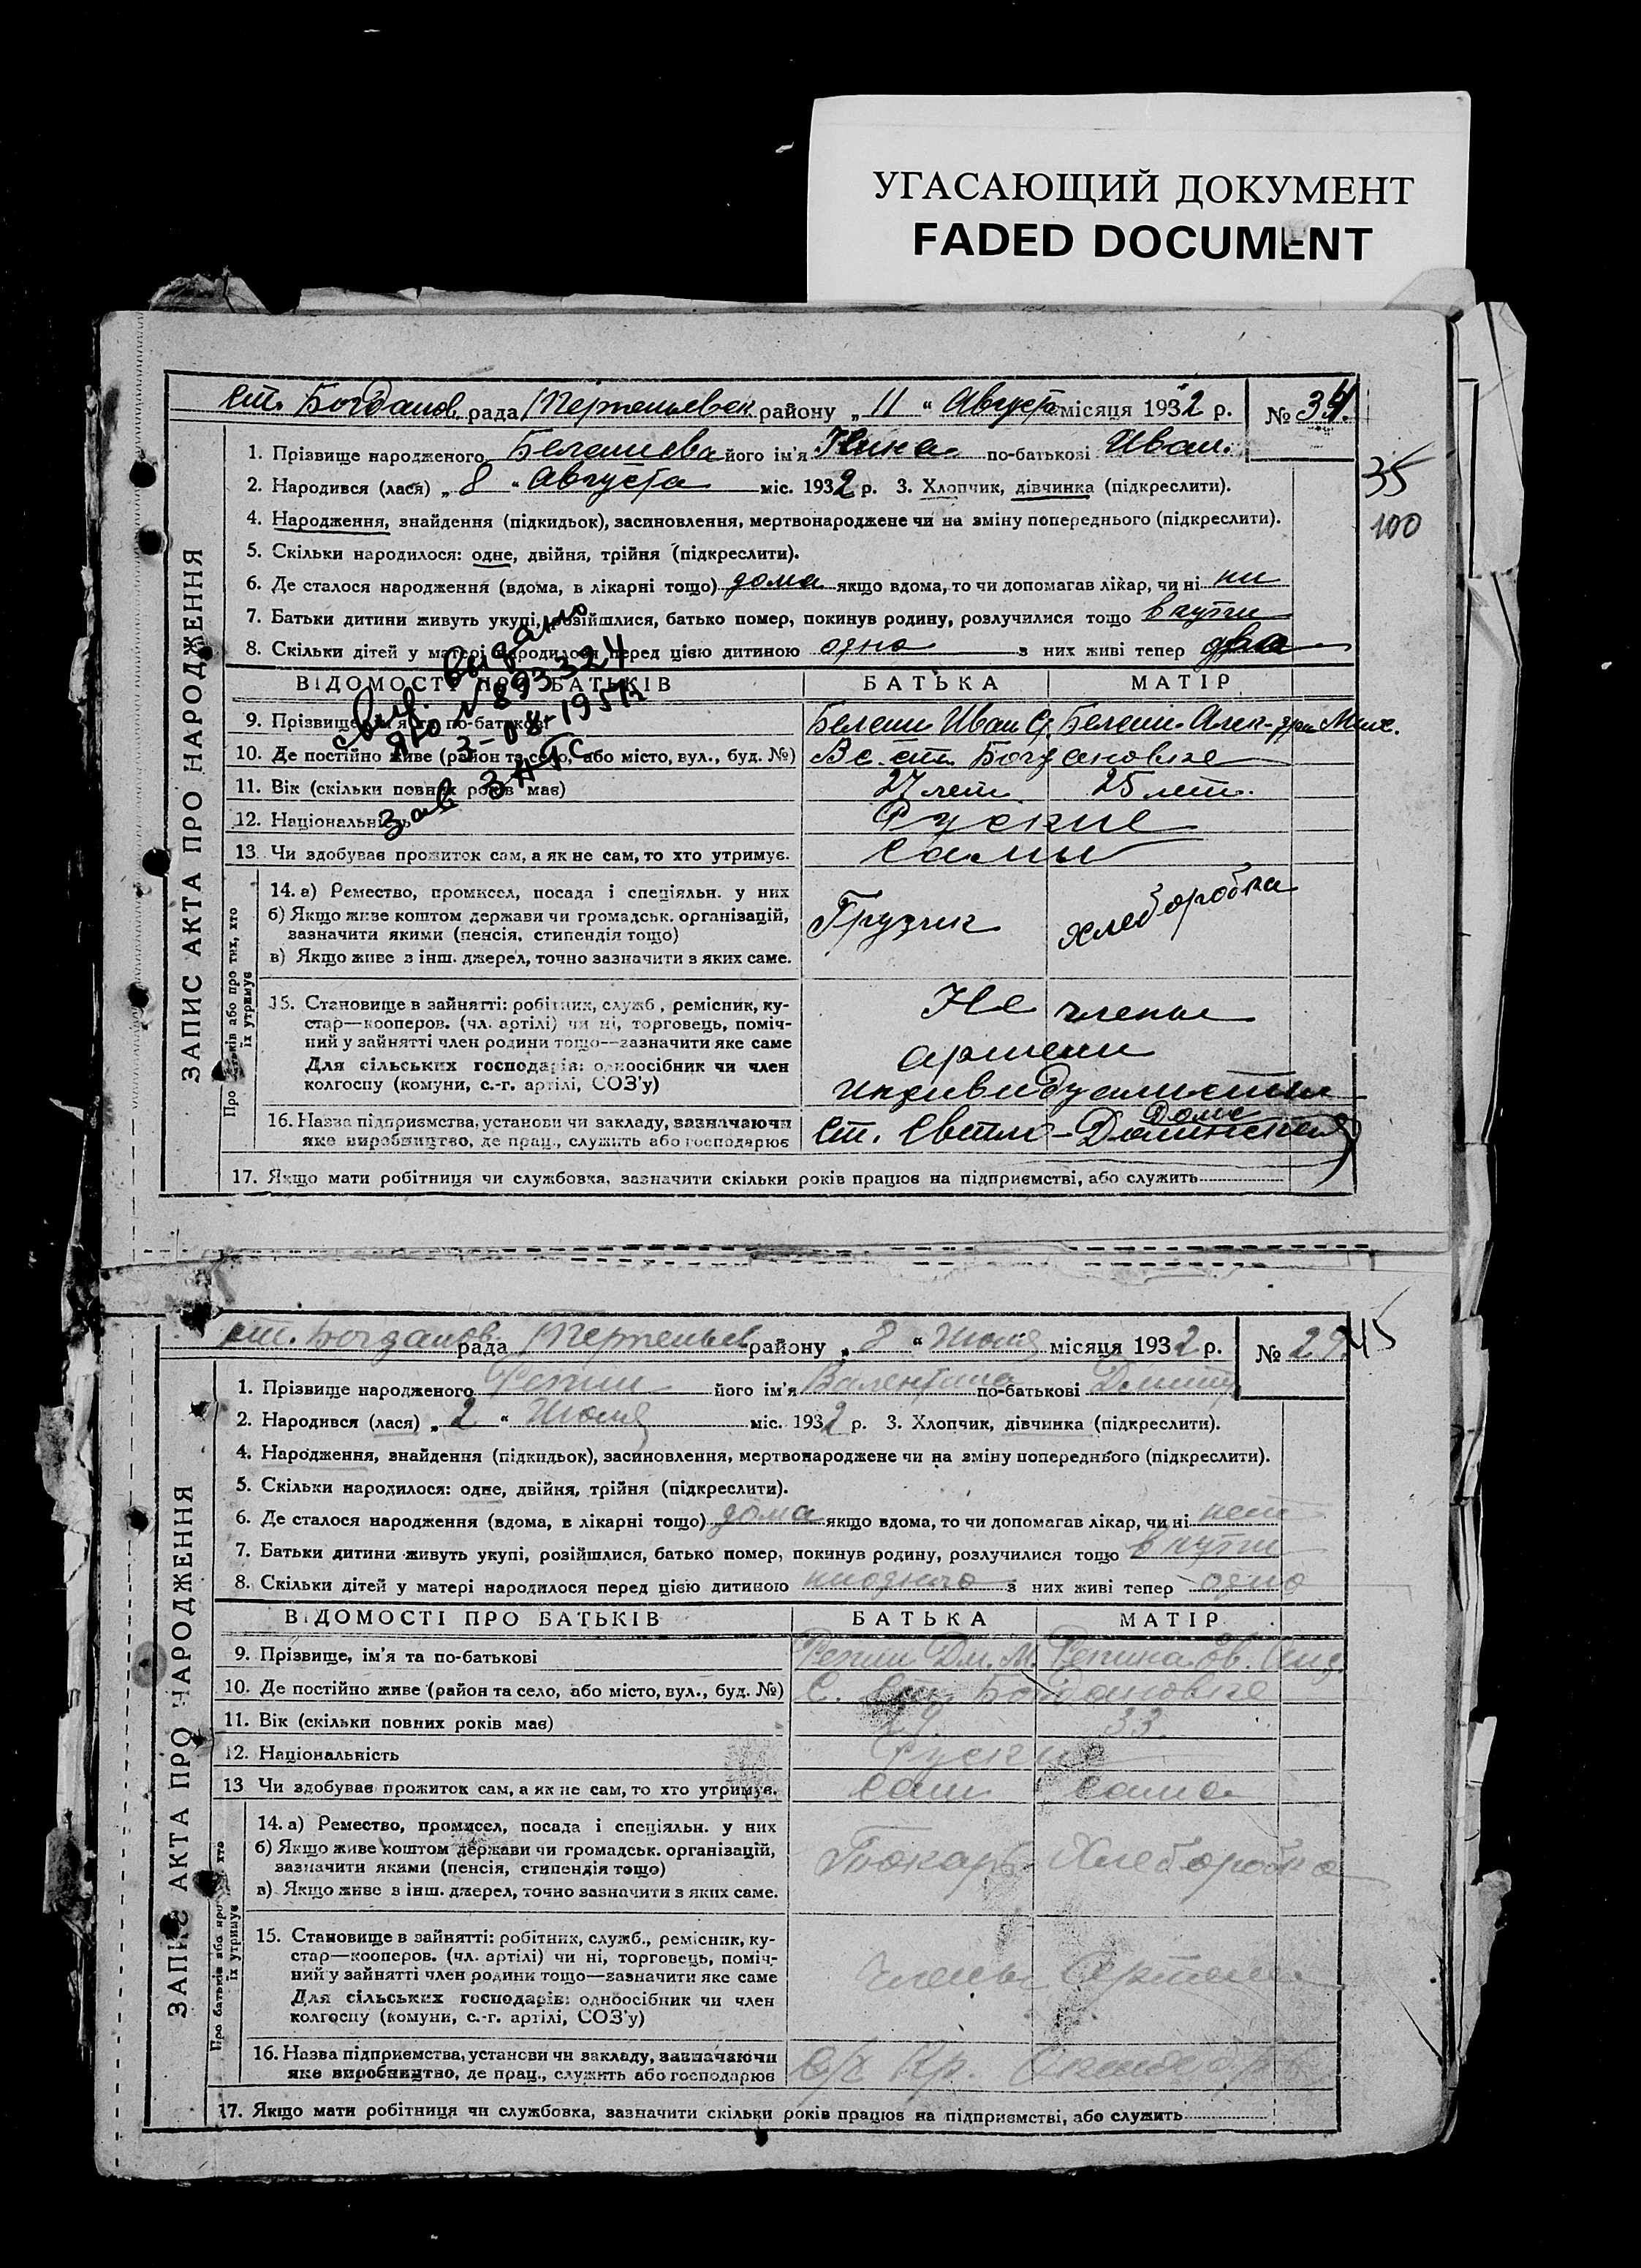 УГАСАЮЩИЙ ДОКУМЕНТ
FADED DOCUMENT
ст. Богданов. рада районy „ 11 “ Августа місяця 1932 р. № 34.
35
100
ЗАПИС АКТА ПРО НАРОДЖЕННЯ
1. Прізвище народженого його ім'я Нина по-батькові Иван.
2. Народився (лася) „ 8 “ Августа міс. 1932 р. 3. Хлопчик, дівчинка (підкреслити).
4. Народження, знайдення (підкидьок), засиновлення, мертвонароджене чи на зміну попереднього (підкреслити).
5. Скільки народилося: одне, двійня, трійня (підкреслити).
6. Де сталося народження (вдома, в лікарні тощо) дома якщо вдома, то чи допомагав лікар, чи ні
7. Батьки дитини живуть укупі, розійшлися, батько помер, покинув родину, розлучилися тощо вкупи
8. Скільки дітей у матері народилося перед цією дитиною одно з них живі тепер два
видано
свид. ЯЮ №893324
3-08-1957г
зав ЗАГС
ВІДОМОСТІ ПРО БАТЬКІВ БАТЬКА МАТІР
9. Прізвище, ім'я та по-батькові Иван
10. Де постійно живе (район та село, або місто, вул., буд. №) В с. ст. Богдановке
11. Вік (скільки повних років має) 27 лет 25 лет.
12. Національність Руские
13. Чи здобуває прожиток сам, а як не сам, то хто утримує. Самы
Про батьків або про тих, хто їх утримує
14. а) Ремество, промисел, посада і спеціяльн. у них
б) Якщо живе коштом держави чи громадськ. організацій,
зазначити якими (пенсія, стипендія тощо) Грузчик хлеборобка
в) Якщо живе з інш. джерел, точно зазначити з яких саме.
15. Становище в зайнятті: робітник, служб., ремісник, ку-
стар—кооперов. (чл. артілі) чи ні, торговець, поміч-
ний у зайнятті член родини тощо—зазначити яке саме
Для сільських господарів: одноосібник чи член
колгоспу (комуни, с.-г. артілі, СОЗ'у)
Не члены
артели
индивидуалисты
16. Назва підприємства, установи чи закладу, зазначаючи
яке виробництво, де прац., служить або господарює
Ст. Светло-Долинская Дома
17. Якщо мати робітниця чи службовка, зазначити скільки років працює на підприємстві, або служить
ст. Богданов. рада району „ 8 “ Июля місяця 1932 р. № 29. 45
ЗАПИС АКТА ПРО НАРОДЖЕННЯ
1. Прізвище народженого Репин його ім'я Валентина по-батькові Дмитр
2. Народився (лася) „ 2 “ Июля міс. 1932 р. 3. Хлопчик, дівчинка (підкреслити).
4. Народження, знайдення (підкидьок), засиновлення, мертвонароджене чи на зміну попереднього (підкреслити).
5. Скільки народилося: одне, двійня, трійня (підкреслити).
6. Де сталося народження (вдома, в лікарні тощо) дома якщо вдома, то чи допомагав лікар, чи ні нет
7. Батьки дитини живуть укупі, розійшлися, батько помер, покинув родину, розлучилися тощо вкупи
8. Скільки дітей у матері народилося перед цією дитиною ниодного з них живі тепер одно
ВІДОМОСТІ ПРО БАТЬКІВ БАТЬКА МАТІР
9. Прізвище, ім'я та по-батькові Репин Дм. М. Репина
10. Де постійно живе (район та село, або місто, вул., буд. №) С. Богдановке
11. Вік (скільки повних років має) 29. 33.
12. Національність Руские
13 Чи здобуває прожиток сам, а як не сам, то хто утримує. Сам Сама
Про батьків або про тих, хто їх утримує
14. а) Ремество, промисел, посада і спеціяльн. у них
б) Якщо живе коштом держави чи громадськ. організацій,
зазначити якими (пенсія, стипендія тощо) Токарь Хлеборобка
в) Якщо живе з інш. джерел, точно зазначити з яких саме.
15. Становище в зайнятті: робітник, служб., ремісник, ку-
стар—кооперов. (чл. артілі) чи ні, торговець, поміч-
ний у зайнятті член родини тощо—зазначити яке саме
Для сільських господарів: одноосібник чи член
колгоспу (комуни, с.-г. артілі, СОЗ'у)
Члены Артели
16. Назва підприємства, установи чи закладу, зазначаючи
яке виробництво, де прац., служить або господарює
17. Якщо мати робітниця чи службовка, зазначити скільки років працює на підприємстві, або служить